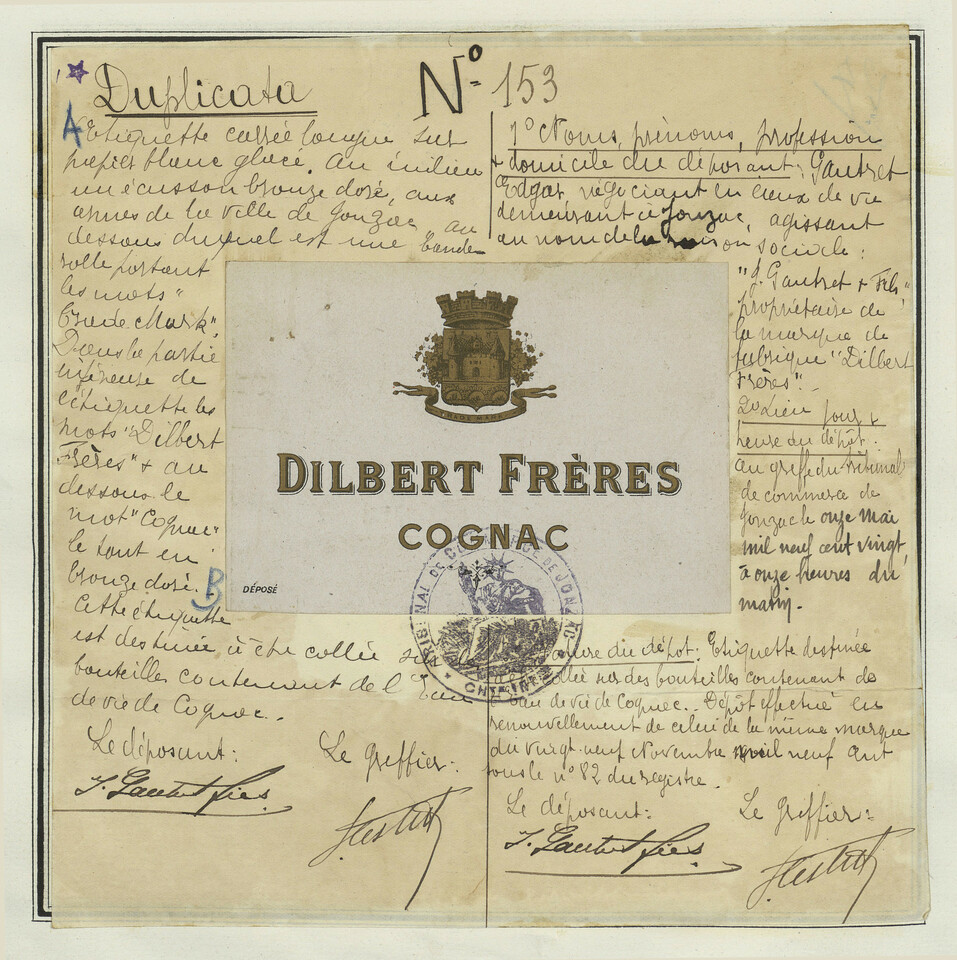 Duplicata
Nº 153
A
Etiquette carrée longue sur
papier blanc glacé. Au milieu
un écusson bronze doré, aux
armes de la ville de Jonzac, au
dessous duquel est une bande-
rolle portant
les mots "
Trade Mark".
Dans la partie
inférieure de
l'étiquette les
mots "Dilbert
Frères" & au
dessous le
mot "Cognac"
le tout en
bronze doré.
B
Cette étiquette
est destinée à être collée sur
bouteilles contenant de l'Eau
de vie de Cognac.
Le déposant:
Le Greffier:
J. Gautret fils
1º Noms, prénoms, profession
& domicile du déposant: Gautret
Edgar, négociant en eaux de vie
demeurant à Jonzac, agissant
au nom de la raison sociale:
"J. Gautret & Fils"
propriétaire de
la marque de
fabrique "Dilbert
Frères".
2º Lieu jour &
heure du dépôt.
au greffe du tribunal
de commerce de
Jonzac le onze mai
mil neuf cent vingt
à onze heures du
matin.
du dépôt. Etiquette destinée
collée sur des bouteilles contenant de
eau de vie de Cognac. Dépôt effectué en
renouvellement de celui de la même marque
du vingt-neuf Novembre mil neuf cent
sous le nº 82 du registre.
Le déposant:
Le Greffier:
J. Gautret fils
TRADE MARK
DILBERT FRÈRES
COGNAC
DÉPOSÉ
DE COMMERCE DE JONZAC